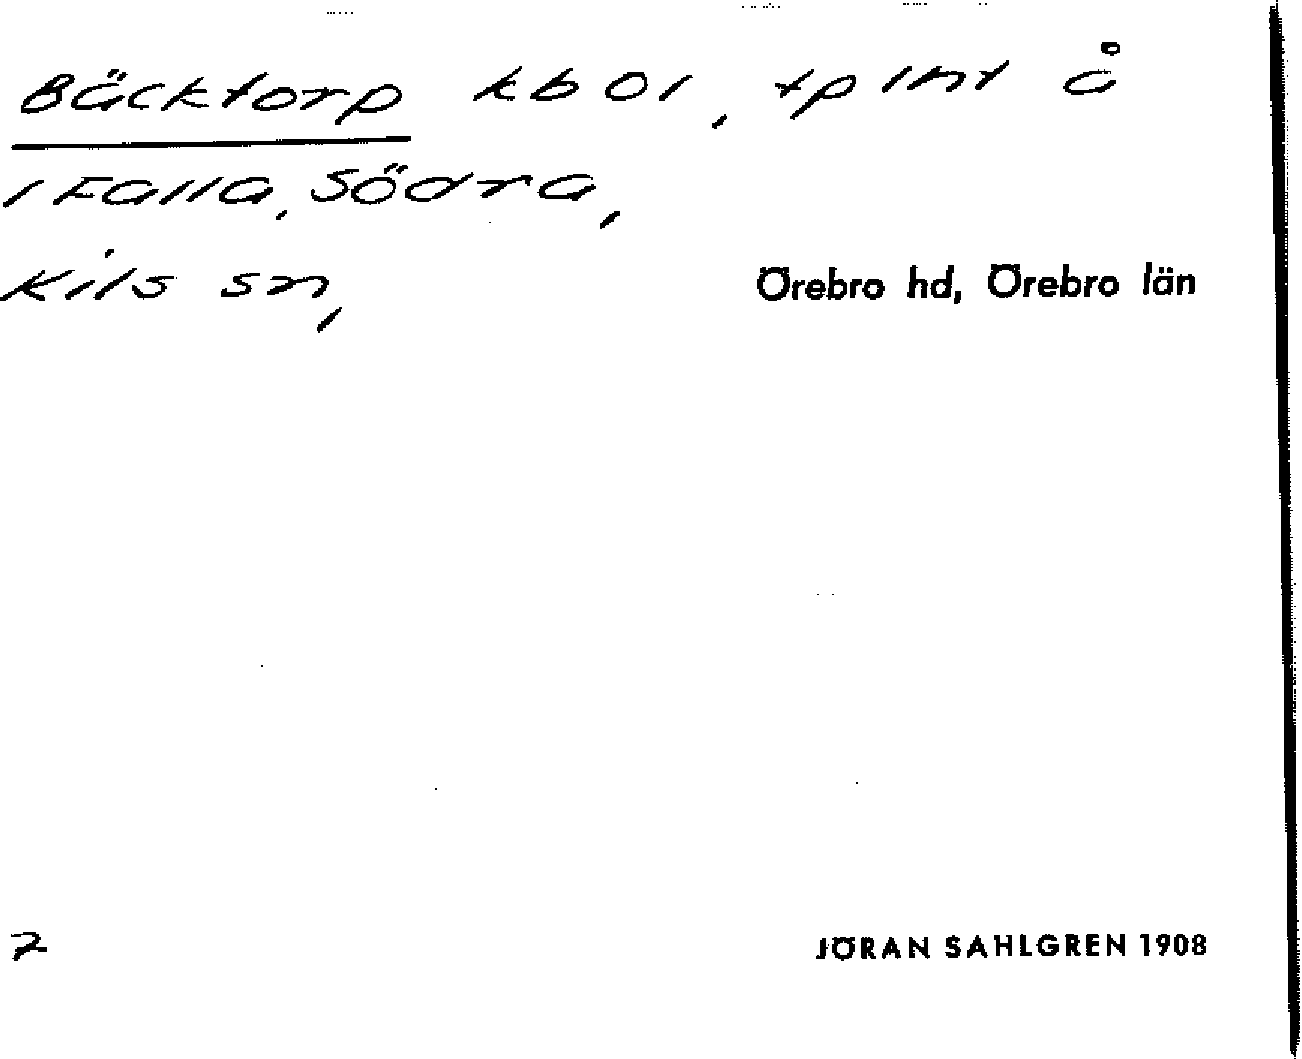 Bäcktorp kbol, tp int å
i Falla, Södra,
Kils sn, Örebro hd, Örebro län
7
JÖRAN SAHLGREN 1908